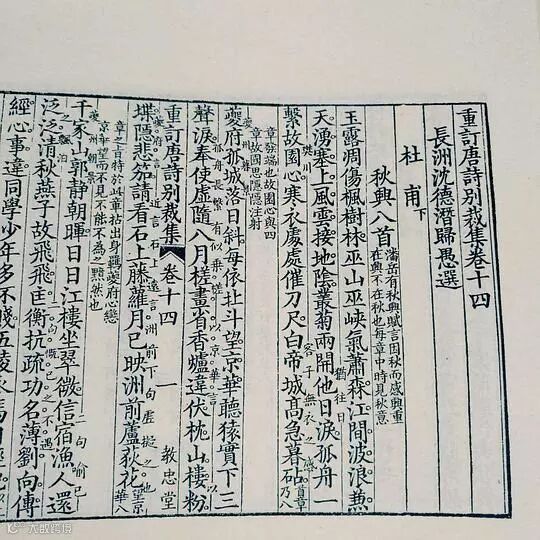 重訂唐詩別裁集卷十四
長洲沈德潛歸愚選
杜甫下
秋興八首 潘岳有秋興賦言因秋而感興重在興不在秋也每章中時見秋意
玉露凋傷楓樹林巫山巫峽氣蕭森江間波浪兼
天湧塞上風雲接地陰叢菊兩開他日淚孤舟一
猶往日
繫故園心寒衣處處催刀尺白帝城高急暮砧 首章乃八
章發端也故園心與四章故園思隱隱注射
夔府孤城落日斜每依北斗望京華聽猿實下三
聲淚奉使虛隨八月槎畫省香爐違伏枕山樓粉
重訂唐詩別裁集 卷十四 一 教忠堂
堞隱悲笳請看石上藤蘿月已映洲前蘆荻花 望京華八
章之旨特於此章拈出身羈夔府心戀京華望而不見不能不為之黯然也
千家山郭靜朝暉日日江樓坐翠微信宿漁人還
泛泛清秋燕子故飛飛匡衡抗疏功名薄劉向傳
經心事違同學少年多不賤五陵